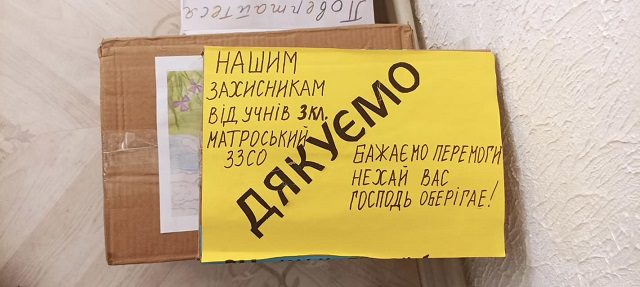 Повертайтеся
НАШИМ
ЗАХИСНИКАМ
ВІД УЧНІВ 3 КЛ.
МАТРОСЬКИЙ
ЗЗСО
ДЯКУЄМО
БАЖАЄМО ПЕРЕМОГИ
НЕХАЙ ВАС
ГОСПОДЬ ОБЕРІГАЄ!